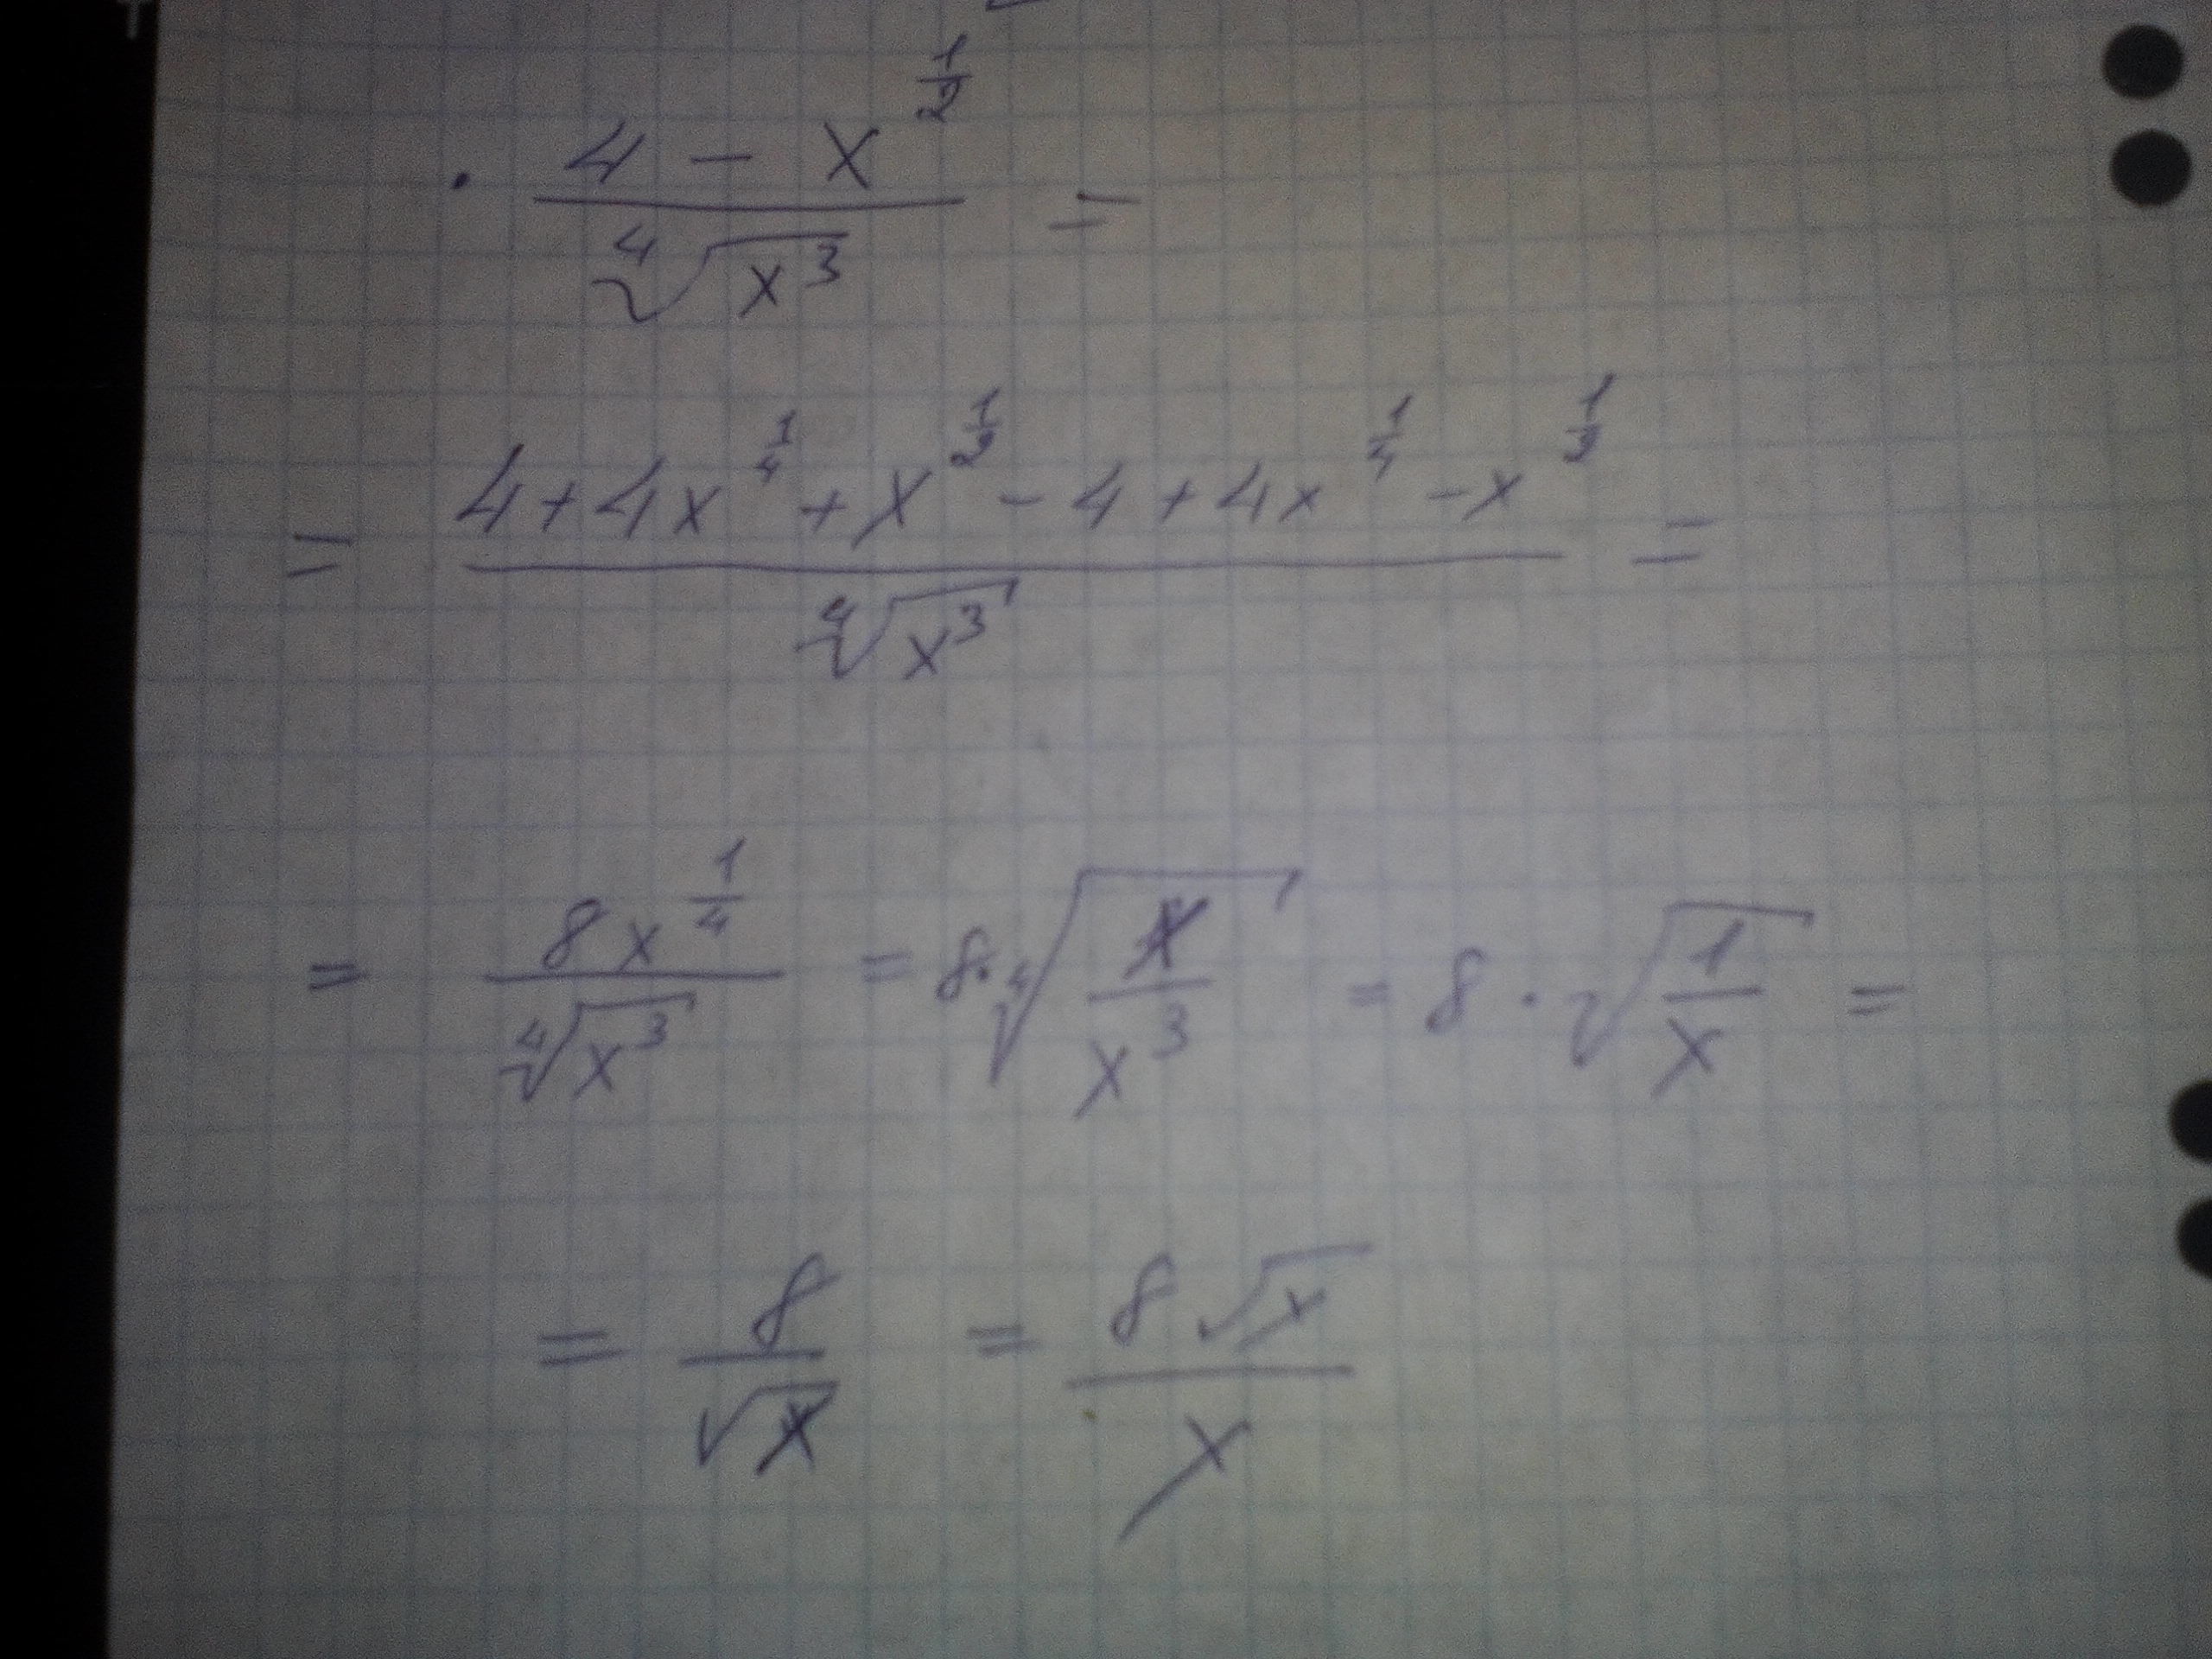 · (4 - x^(1/2)) / ⁴√(x³) =
= (4 + 4x^(1/4) + x^(1/2) - 4 + 4x^(1/4) - x^(1/2)) / ⁴√(x³) =
= 8x^(1/4) / ⁴√(x³) = 8·⁴√(x / x³) = 8 · √(1 / x) =
= 8 / √x = 8√x / x